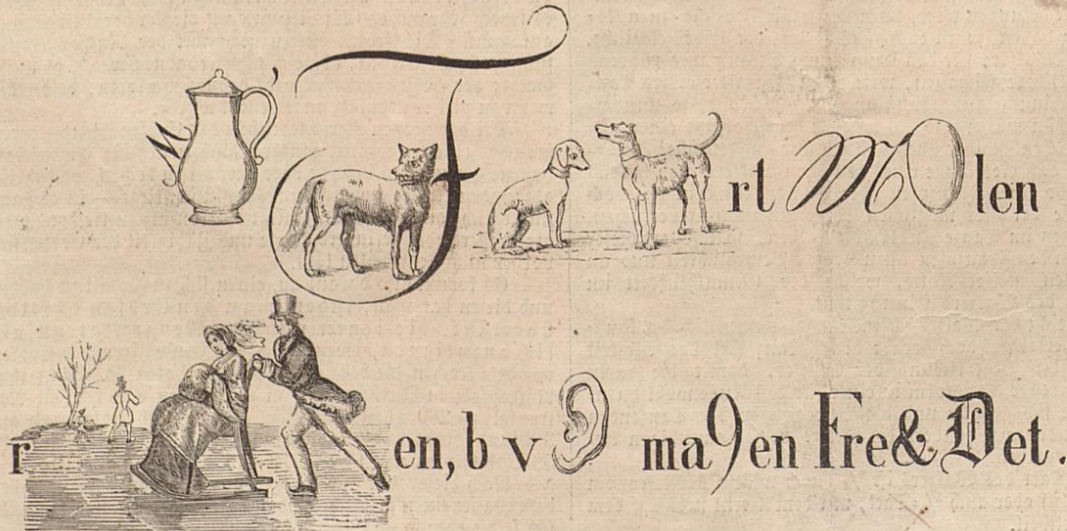 M ’ F rt MO len
r en, b v ma9en Fre& Det.